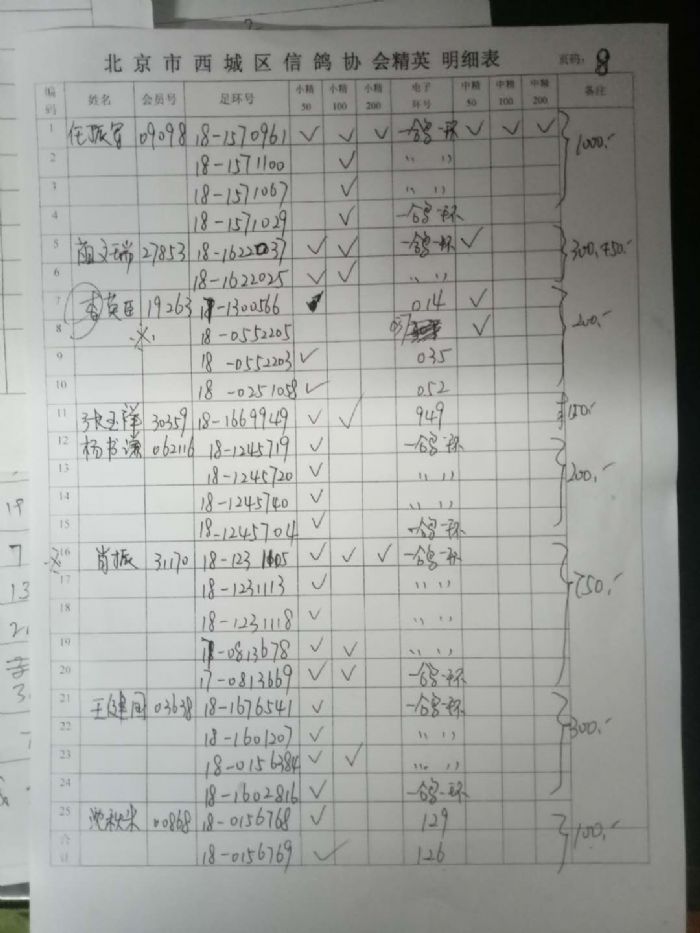 北京市西城区信鸽协会精英 明细表 页码: 8
编码 姓名 会员号 足环号 小精50 小精100 小精200 电子环号 中精50 中精100 中精200 备注
1 09098 18-1570961 ✓ ✓ ✓ 一鸽一环 ✓ ✓ ✓ 1000,-
2 18-1571100 ✓ 〃 〃
3 18-1571067 ✓ 〃 〃
4 18-1571029 ✓ 一鸽一环
5 27853 18-1622037 ✓ ✓ 一鸽一环 ✓ 300,450,-
6 18-1622025 ✓ ✓ 〃 〃
7 19263 18-1300566 014 ✓ 200,-
8 18-0552205 037 ✓
9 18-0552203 ✓ 035
10 18-0251058 ✓ 052
11 张玉洋 30359 18-1669949 ✓ ✓ 949 150,-
12 杨书谦 062116 18-1245719 ✓ 一鸽一环 200,-
13 18-1245720 ✓ 〃 〃
14 18-1245740 ✓ 〃 〃
15 18-1245704 ✓ 一鸽一环
16 肖振 31170 18-1231105 ✓ ✓ ✓ 一鸽一环 750,-
17 18-1231113 ✓ 〃 〃
18 18-1231118 ✓ 〃 〃
19 17-0813678 ✓ ✓ 〃 〃
20 17-0813669 ✓ ✓ 一鸽一环
21 王健国 03638 18-1676541 ✓ 一鸽一环 300,-
22 18-1601207 ✓ 〃 〃
23 18-0156384 ✓ ✓ 〃 〃
24 18-1602816 ✓ 一鸽一环
25 沈秋米 00868 18-0156768 ✓ 129 100,-
合计 18-0156769 ✓ 126